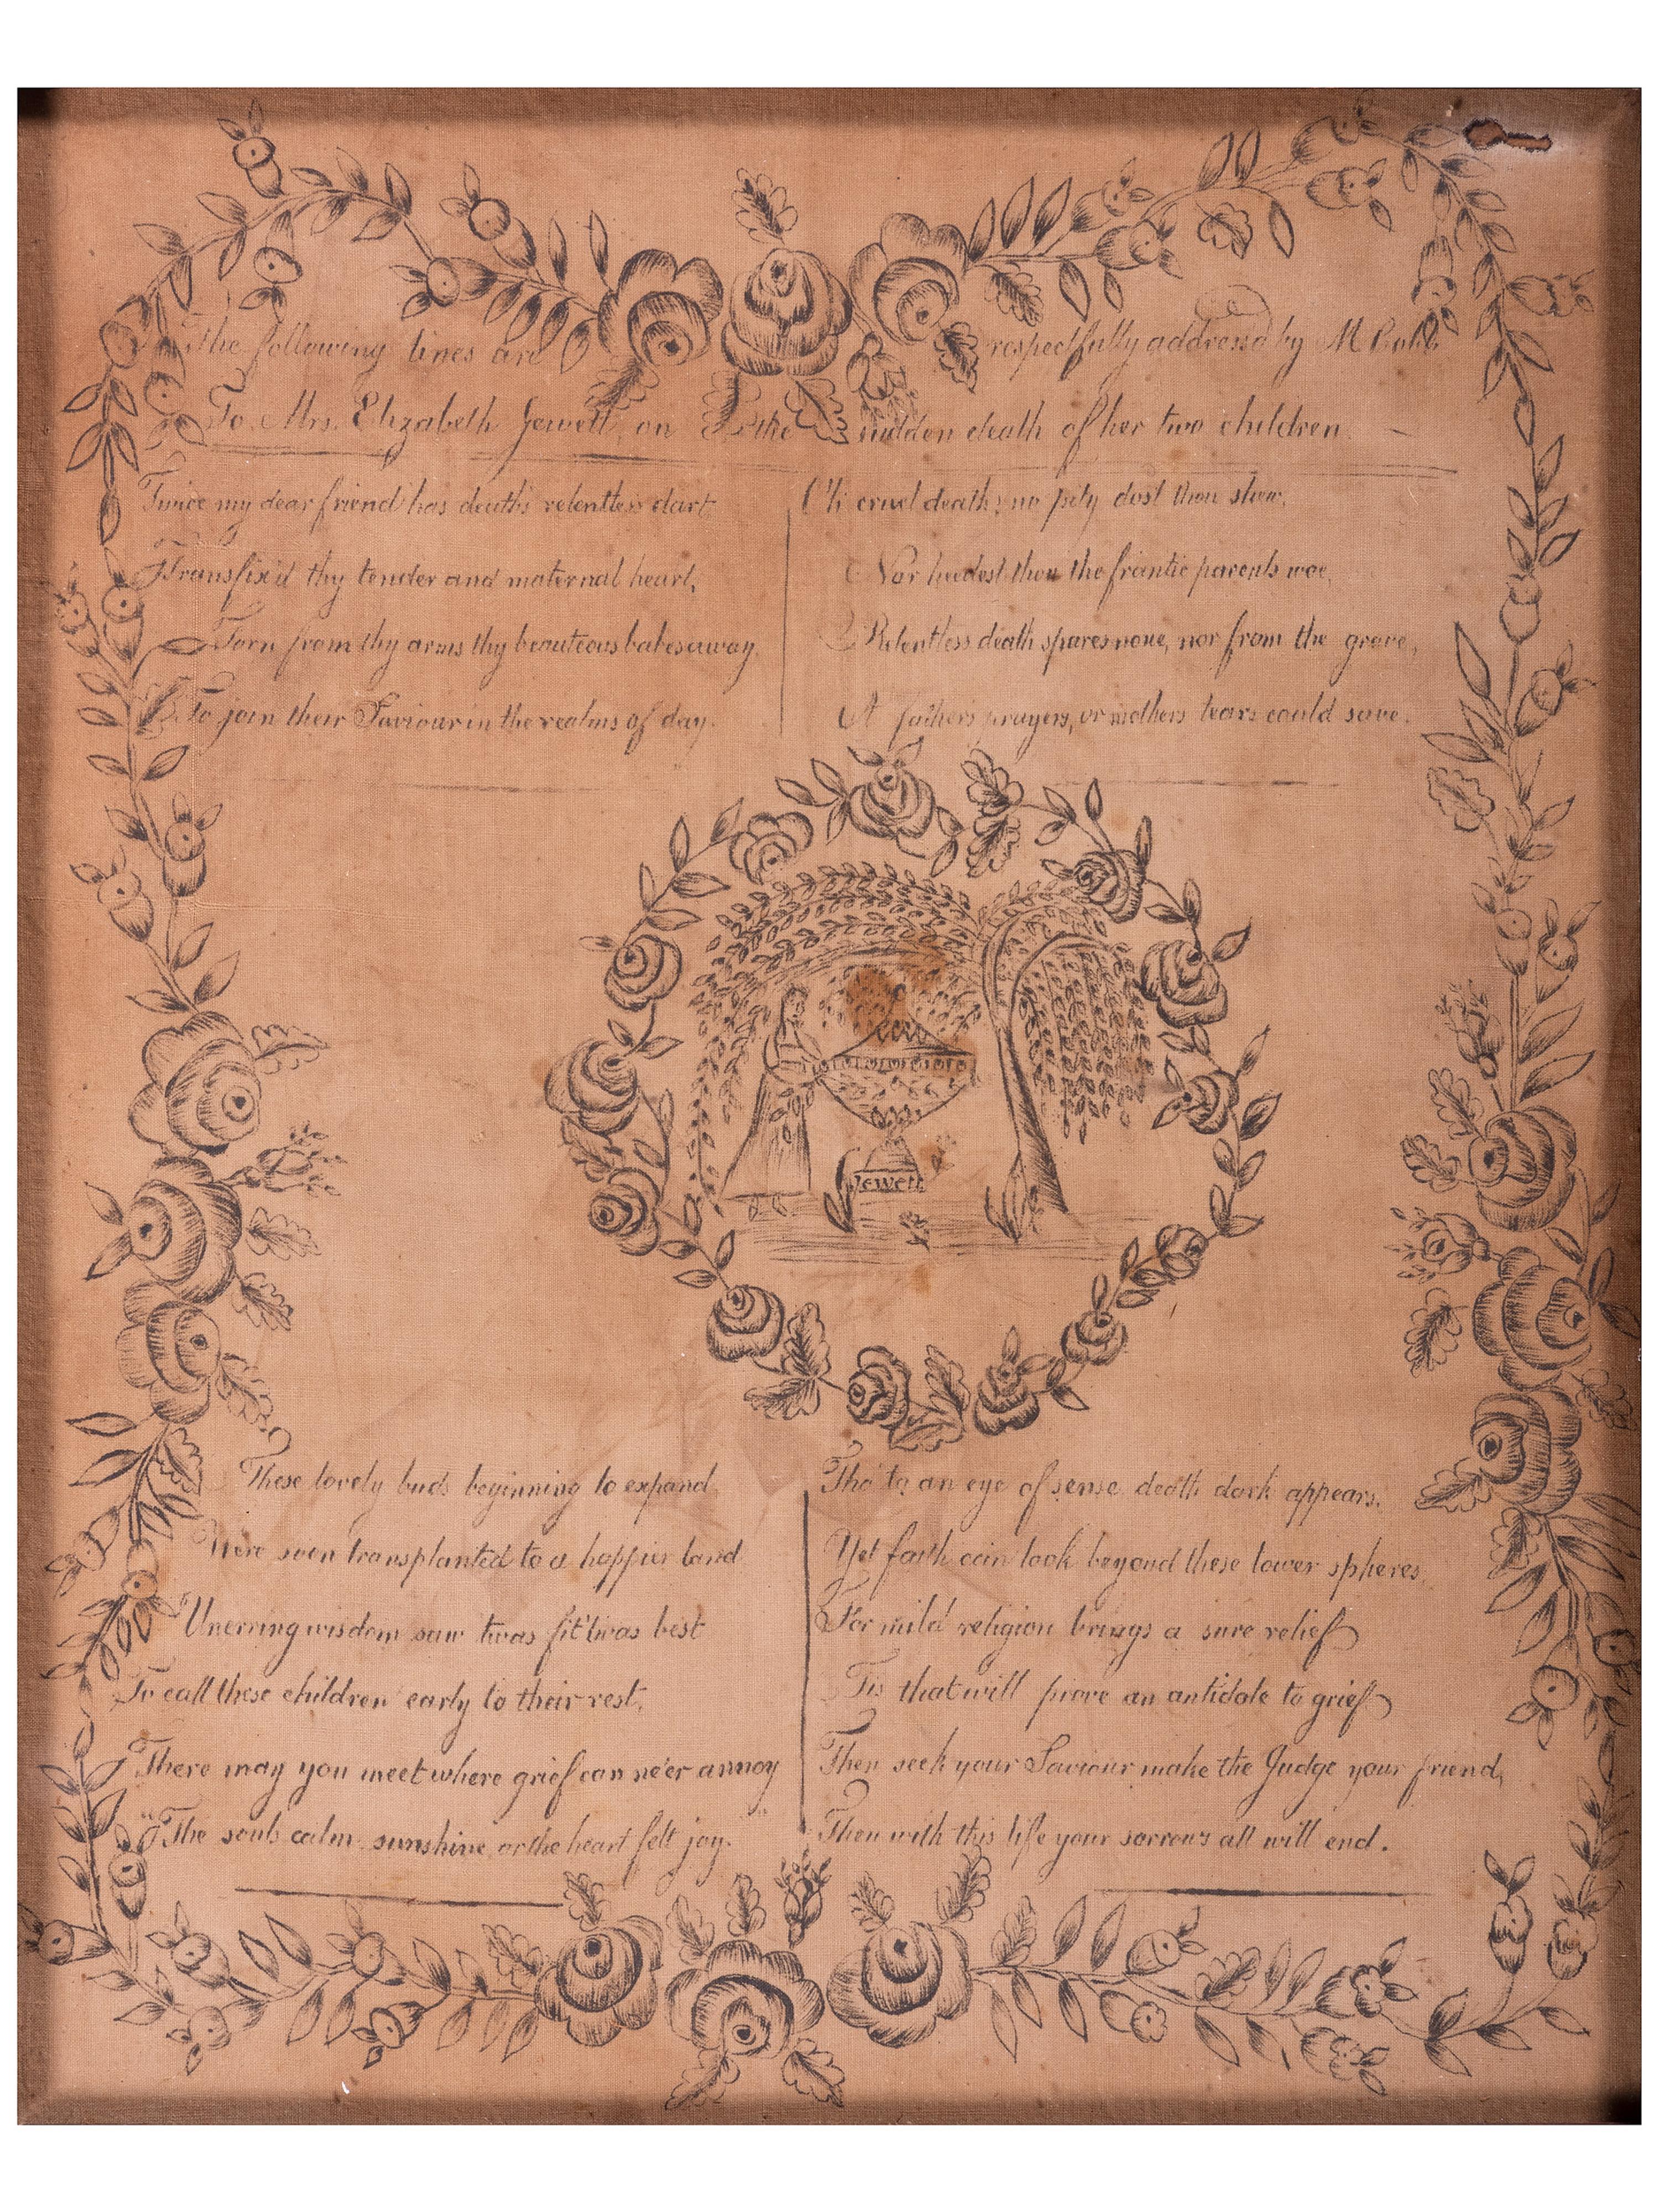 The following lines are respectfully addressed by M
To Mrs. Elizabeth Jewett, on the sudden death of her two children.
Twice my dear friend has death's relentless dart
Transfix'd thy tender and maternal heart,
Torn from thy arms thy beauteous babes away,
To join their Saviour in the realms of day.
Oh cruel death; no pity dost thou show,
Nor heedest thou the frantic parents woe,
Relentless death spares none, nor from the grave,
A fathers prayers, or mothers tears could save.
Jewett
These lovely buds beginning to expand,
Were soon transplanted to a happier land
Unerring wisdom saw twas fit twas best
To call these children early to their rest,
There may you meet where grief can ne'er annoy
"The souls calm sunshine, or the heart felt joy."
Tho' to an eye of sense death dark appears,
Yet faith can look beyond these lower spheres,
For mild religion brings a sure relief
Tis that will prove an antidote to grief
Then seek your Saviour make the Judge your friend,
Then with this life your sorrows all will end.